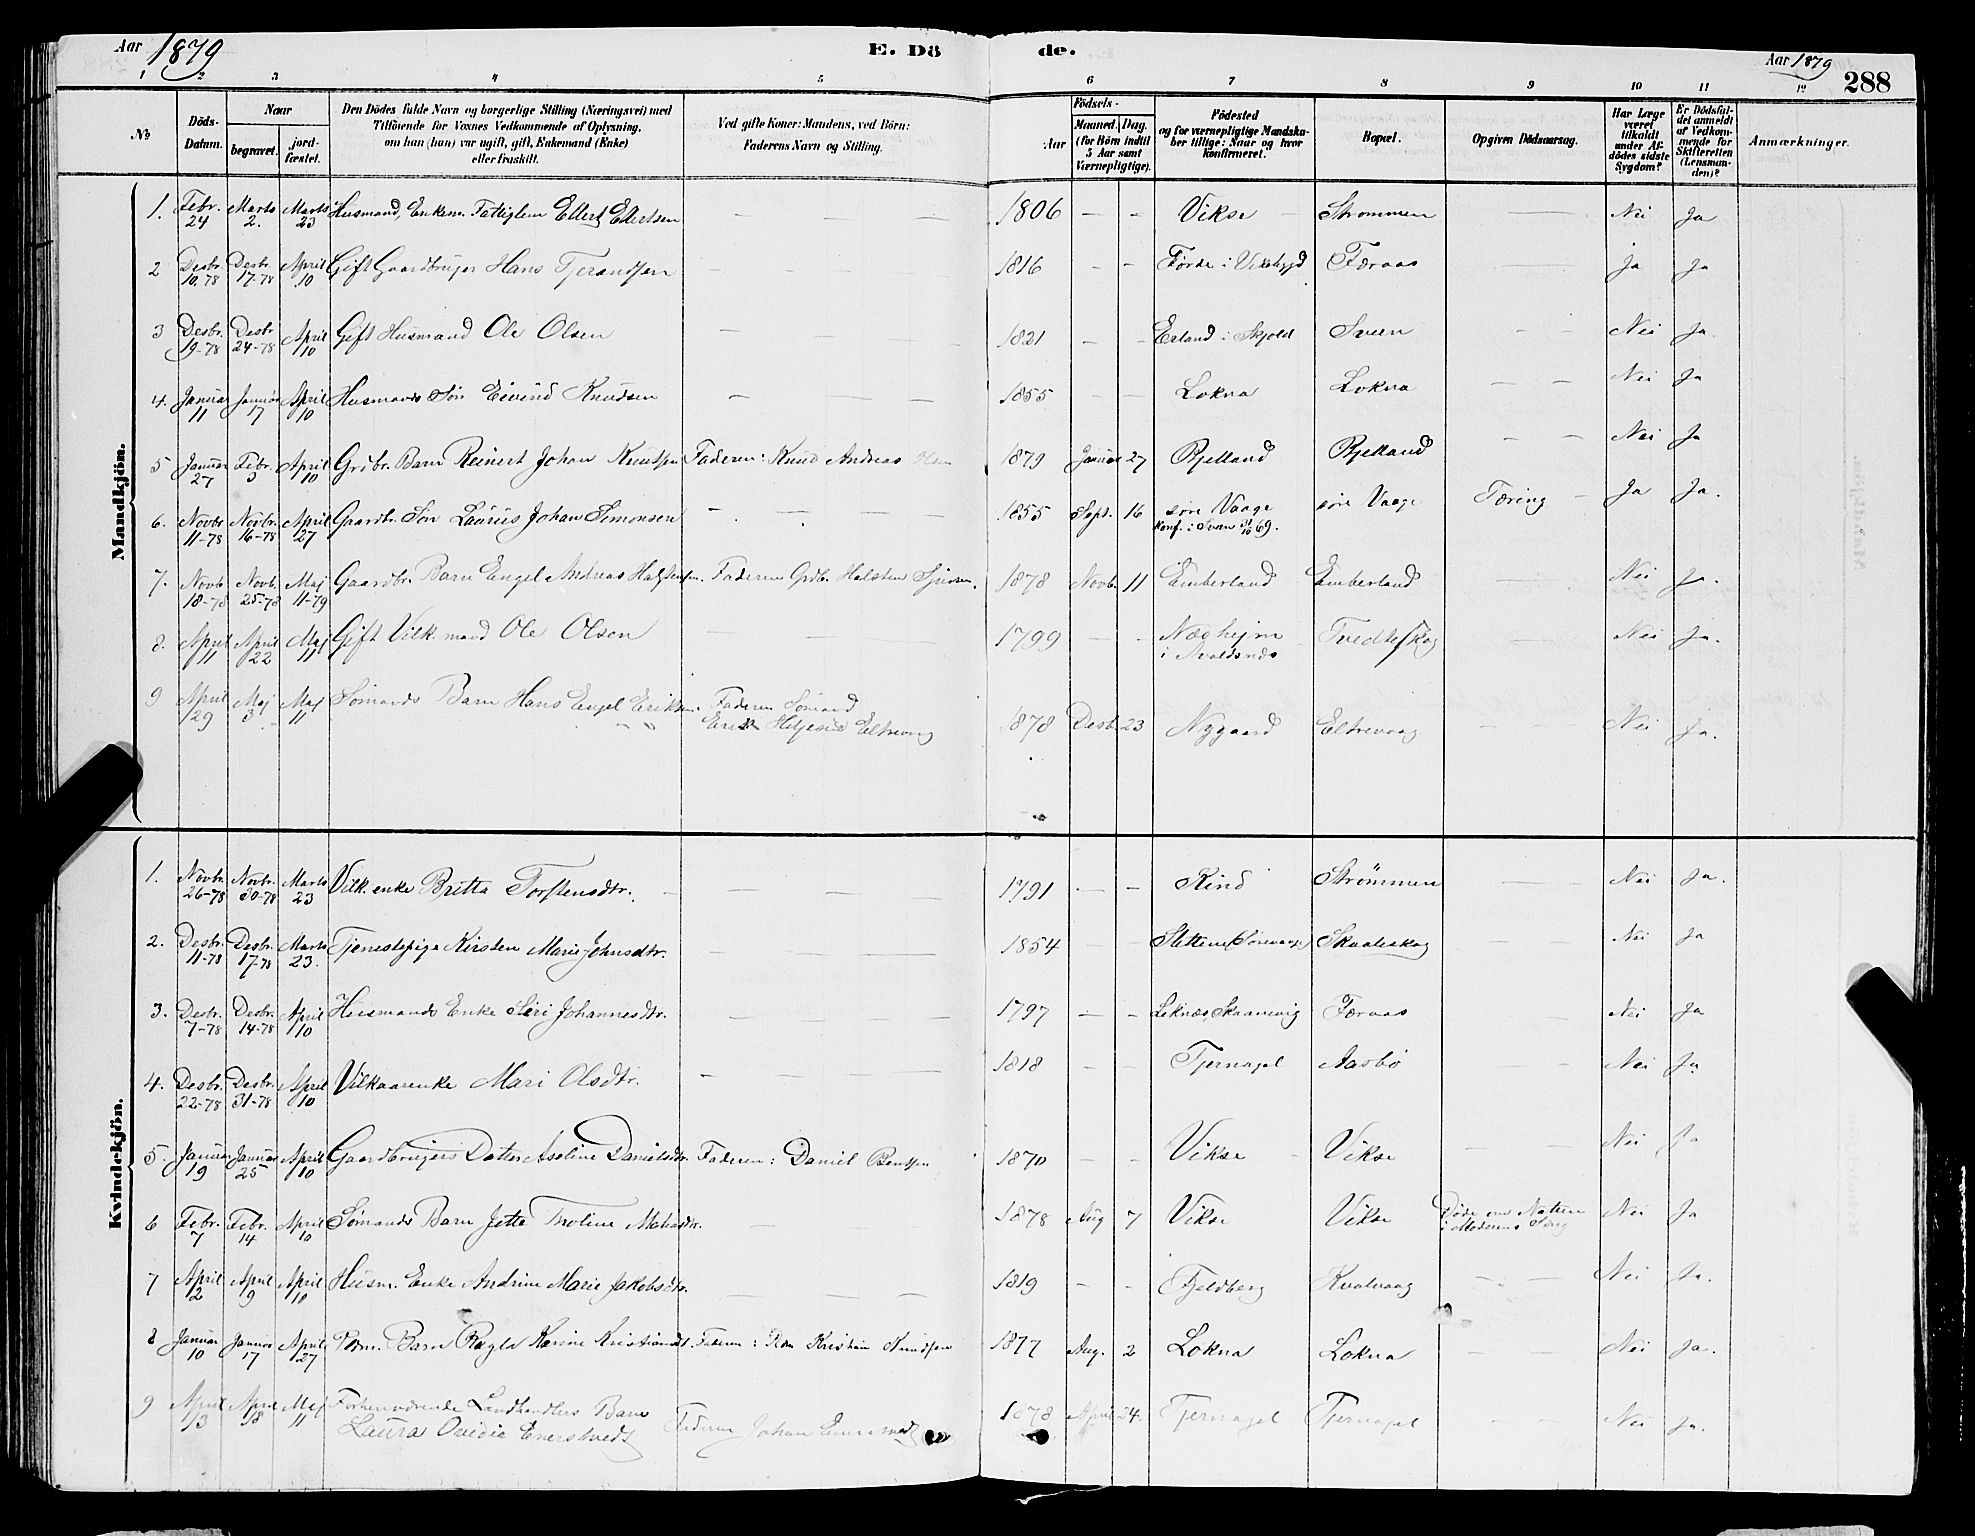 Aar 1879
E. Dö
de.
Aar 1879
288
1 2 3 4 5 6 7 8 9 10 11 12
No
Döds-
Datum.
Naar
begravet.
jord-
fæstet.
Den Dödes fulde Navn og borgerlige Stilling (Næringsvei) med
Tilföiende for Voxnes Vedkommende af Oplysning,
om han (hun) var ugift, gift, Enkemand (Enke)
eller fraskilt.
Ved gifte Koner: Mandens, ved Börn:
Faderens Navn og Stilling.
Aar
Födsels-
Maaned. Dag.
(for Börn indtil
5 Aar samt
Værnepligtige).
Födested
og for værnepligtige Mandska-
ber tillige: Naar og hvor
konfirmeret.
Bopæl.
Opgiven Dödsaarsag.
Har Læge
været
tilkaldt
under Af-
dödes sidste
Sygdom?
Er Dödsfal-
det anmeldt
af Vedkom-
mende for
Skifteretten
(Lensman-
den)?
Anmærkninger.
Mandkjön.
1. Febr. 24 Marts 2. Marts 23 Husmand, Enkem. Fattiglem Ellert Ellertsen — — — 1806 — — Vikse Strømmen — Nei Ja
2 Desbr. 10.78 Desbr. 17-78 April 10 Gift Gaardbruger Hans Tjerandsen — — — 1816 — — Førde i Vikebygd Færaas — ja ja
3 Desbr. 19-78 Desbr 24-78 April 10 Gift Husmand Ole Olsen — — — 1821 — — Erland i Skjold Sveen — — Nei Ja.
4. Januar 11 Januar 17 April 10 Husmands Søn Eivind Knudsen — — — — 1855 — — Lokna Lokna — — Nei Ja
5 Januar 27 Febr. 3 April 10 Grdbr. Barn Reinert Johan Knutsen Faderen: Knud Andreas Olsen 1879 Januar 27 Bjelland Bjelland — — Nei Ja
6. Novbr 11-78 Novbr. 16-78 April 27 Gaardbr. Søn Laurus Johan Simonsen — — — — 1855 Sept. 16 søre Vaage søre Vaage Tæring — Ja Ja.
Konf. i Sveen 69.
7. Novb 18-78 Novb. 25-78 Maj 11-79 Gaardbr. Barn Engel Andreas Halstensen. Faderen Grdb. Halsten 1878 Novb. 11 Emberland Emberland — Nei Ja.
8. April 11 April 22 Maj 11 Gift Vilk. mand Ole Olsen — — — 1799 — — Tvedteskog — — Nei Ja.
i Avaldsnæs
9 April 29 Maj 3 Maj 11 Sømands Barn Hans Engel Eriksen. Faderen Sømand
Erik Eltrevaag 1878 Desb. 23 Nygaard Eltrevaag — — Nei Ja.
Kvindekjön.
1. Novbr. 26-78 Novbr. 30-78 Marts 23 Vilk. enke Britta Torstensdtr. — — — — 1791 — — Rind Strömmen — — Nei Ja.
2. Desbr. 11-78 Desbr. 17-78 Marts 23. Tjenestepige Kirsten Marie Johnsdtr. — — — — 1854 — — Skaaleskog — Nei Ja
3. Desbr. 7-78 Desbr. 14-78 April 10 Husmands Enke Siri Johannesdtr. — — — — 1797 — — Leknæs, Skaanevig Færaas — — Nei Ja
4. Desbr. 22-78 Desbr. 31-78 April 10 Vilkaarenke Mari Olsdtr. — — — — 1818 — — Tjernagel Aasbö — — Nei Ja
5. Januar 19 Januar 25 April 10 Gaardbrugers Datter Aseline Danielsdtr. Faderen: Daniel Bentsen 1870 — — Vikse Vikse — Nei Ja
6 Febr. 7 Febr. 14 April 10 Sømands Barn Jette Tholine — — 1878 Aug 7 Vikse Vikse Døde om Natten
i Moderens Nei Ja
7 April 2 April 9 April 10 Husm. Enke Andrine Marie Jakobsdtr. — — — — 1819 — — Fjeldberg Kvalvaag — — Nei Ja.
8 Januar 10 Januar 17 April 27 Barn Karine Kristiansdt. Faderen: Kristian Knudsen 1877 Aug. 2 Lokna Lokna — — Nei Ja.
9 April 13 April 18 Maj 11 Forhenværende Landhandlers Barn
Laura Ovidia Enerstvedt Faderen Johan Enerstvedt 1878 April 24. Tjernagel Tjernagel — — Nei Ja.